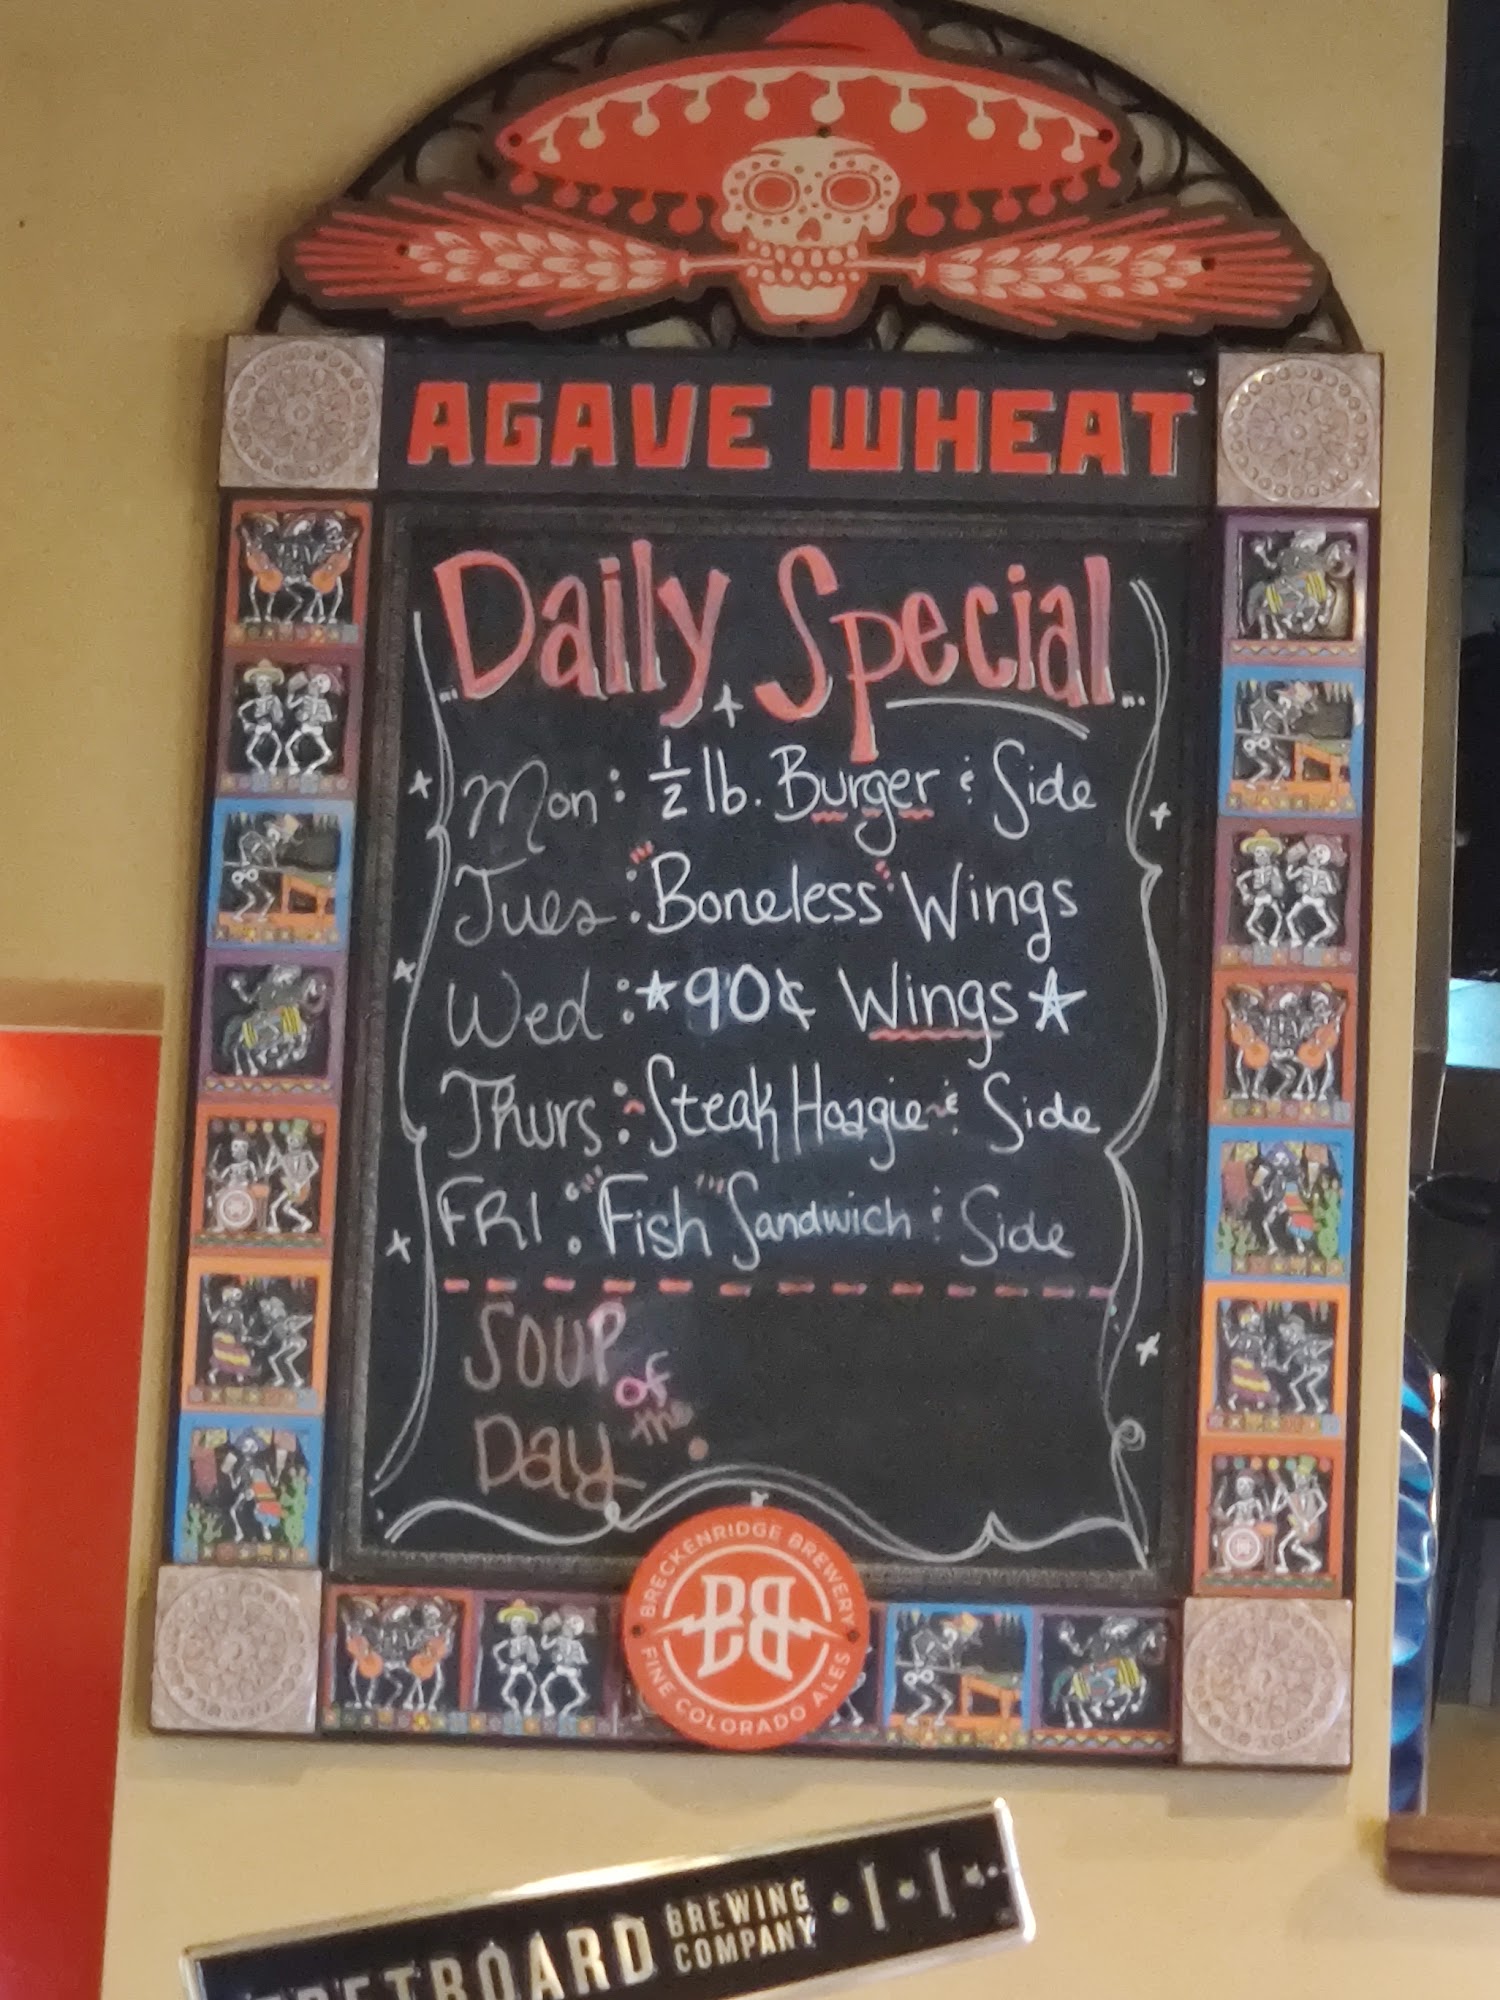 AGAVE WHEAT
Daily Special
Mon: 1/2 lb. Burger & Side
Tues: "Boneless" Wings
Wed: 90¢ Wings
Thurs: ~Steak Hoagie~ & Side
FRI: "Fish" Sandwich & Side
SOUP
of
the
Day
BRECKENRIDGE BREWERY
BB
FINE COLORADO ALES
BREWING
COMPANY